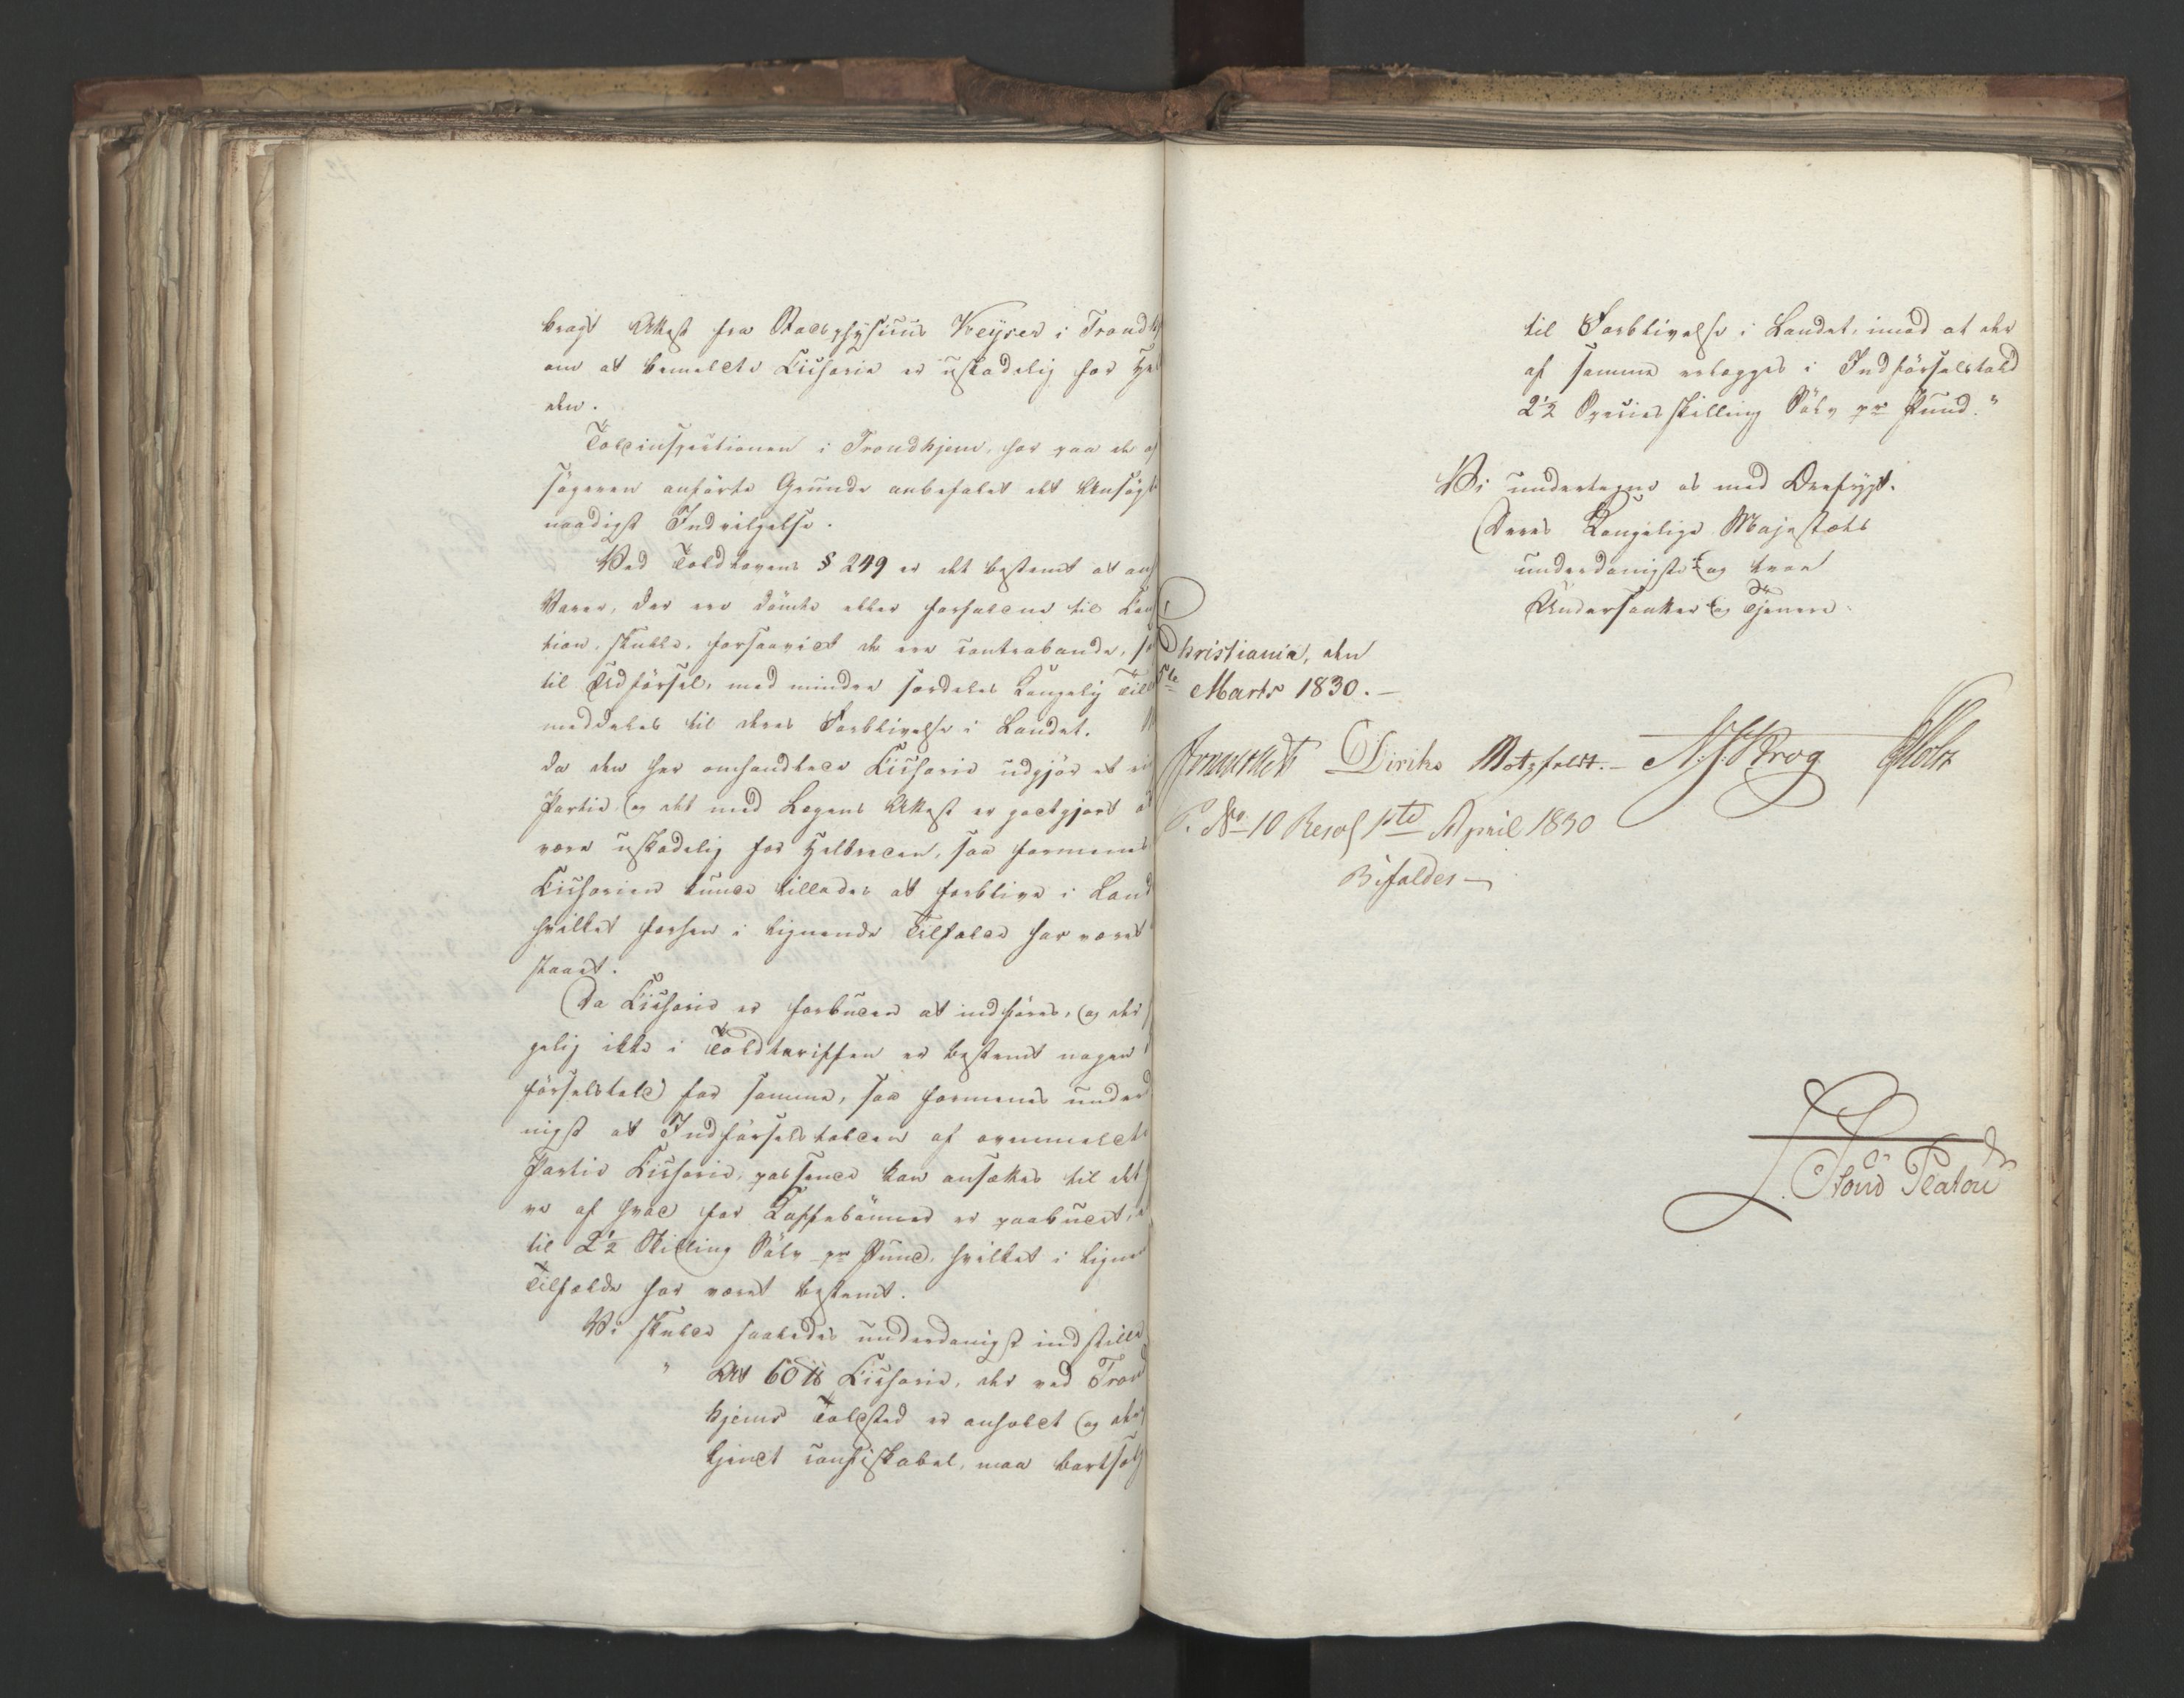 bragt Attest fra Stadsphysicus Keyser i Trondh
om at bemeldte Cichorie er uskadelig for Hel
den.
Toldinspectionen i Trondhjem, har paa de af
søgeren anførte Grunde anbefalet det Ansøgte
naadigst Indvilgelse.
Ved Toldlovens § 249 er det bestemt at
Varer, der ere dømte eller forfaldne til Con
tion, skulle, forsaavidt de ere contrabande,
til Udførsel, med mindre særdeles Kongelig Till
meddeles til deres Forblivelse i Landet.
da den her omhandlede Cichorie udgjør et
Partie og det med Lægens Attest er godtgjort at
være uskadelig for Helbreden, saa formenes
Cichorien kunde tillades at forblive i Land
hvilket forhen i lignende Tilfælde har været
staaet.
Da Cichorie er forbuden at indføres, og der
gelig ikke i Toldtariffen er bestemt nogen
førselstold for samme, saa formenes underd
nigst at Indførselstolden af ovenmeldte
Partie Cichorie, passende kan ansættes til det
re af hvad for Kaffebønner er paabudet,
til 2½ Skilling Sølv pr Pund, hvilket i ligne
Tilfælde har været bestemt.
Vi skulde saaledes underdanigst indstille
" At 60 ℔ Cichorie, der ved Trond
hjems Toldsted er anholdt og
kjendt confiskabel, maa bortsælg
til Forblivelse i Landet, imod at der
af samme erlægges i Indførselstold
2½ Speciesskilling Sølv pr Pund."
Vi undertegne os med Ærefrygt.
Deres Kongelige Majestæts
underdanigste og troe
Undersaatter og Tjenere.
Christiania, den
5te Marts 1830.-
Diriks Motzfeldt.- N. J. Krog Holst
P. No 10 Resol 1ste April 1830
Bifaldes
L. Stoud Platou